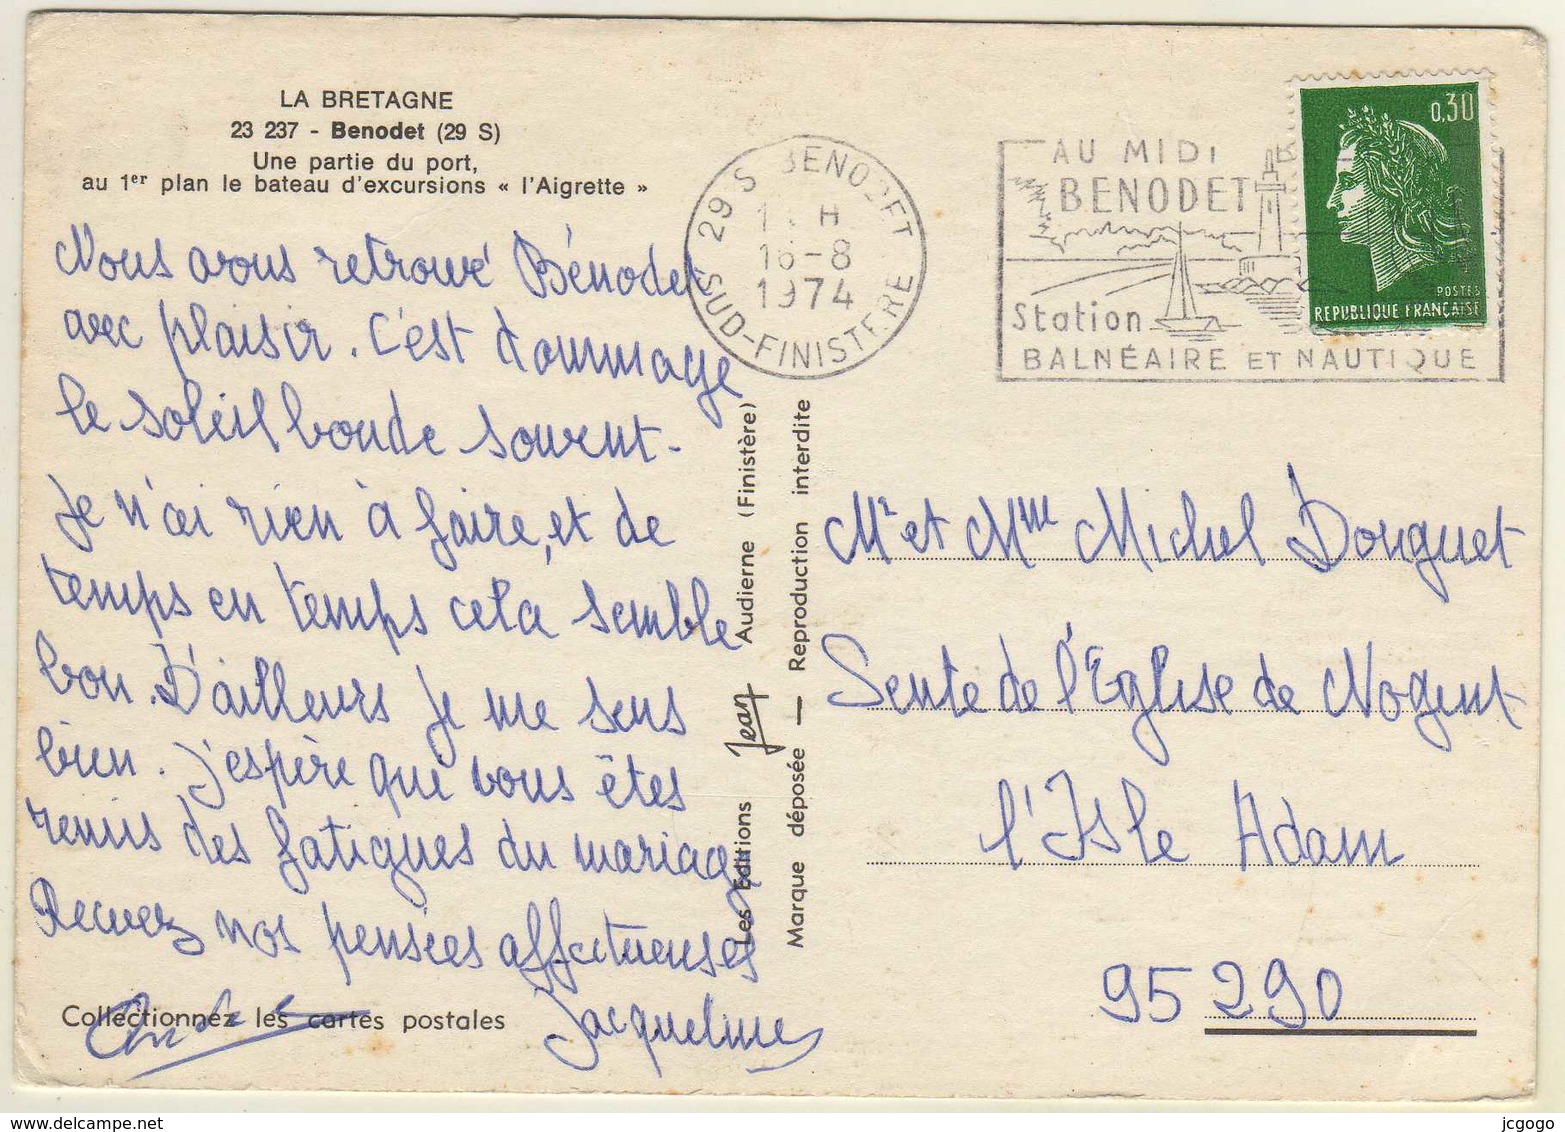 LA BRETAGNE
23 237 - Benodet (29 S)
Une partie du port,
au 1er plan le bateau d'excursions « l'Aigrette »
Nous avons retrouvé Bénodet
avec plaisir. C'est dommage
le soleil boude souvent.
Je n'ai rien à faire, et de
temps en temps cela semble
bon. D'ailleurs je me sens
bien. J'espère que vous êtes
remis des fatigues du mariage
Recevez nos pensées affectueuses
Jacqueline
Collectionnez les cartes postales
Les Éditions Jean Audierne (Finistère)
Marque déposée — Reproduction interdite
29 S BENODET
H
16-8
1974
SUD-FINISTERE
AU MIDI
BENODET
Station
BALNÉAIRE ET NAUTIQUE
0,30
POSTES
REPUBLIQUE FRANÇAISE
Mr et Mme Michel Donguet
Sente de l'Eglise de Nogent
l'Isle Adam
95 290
jcgogo